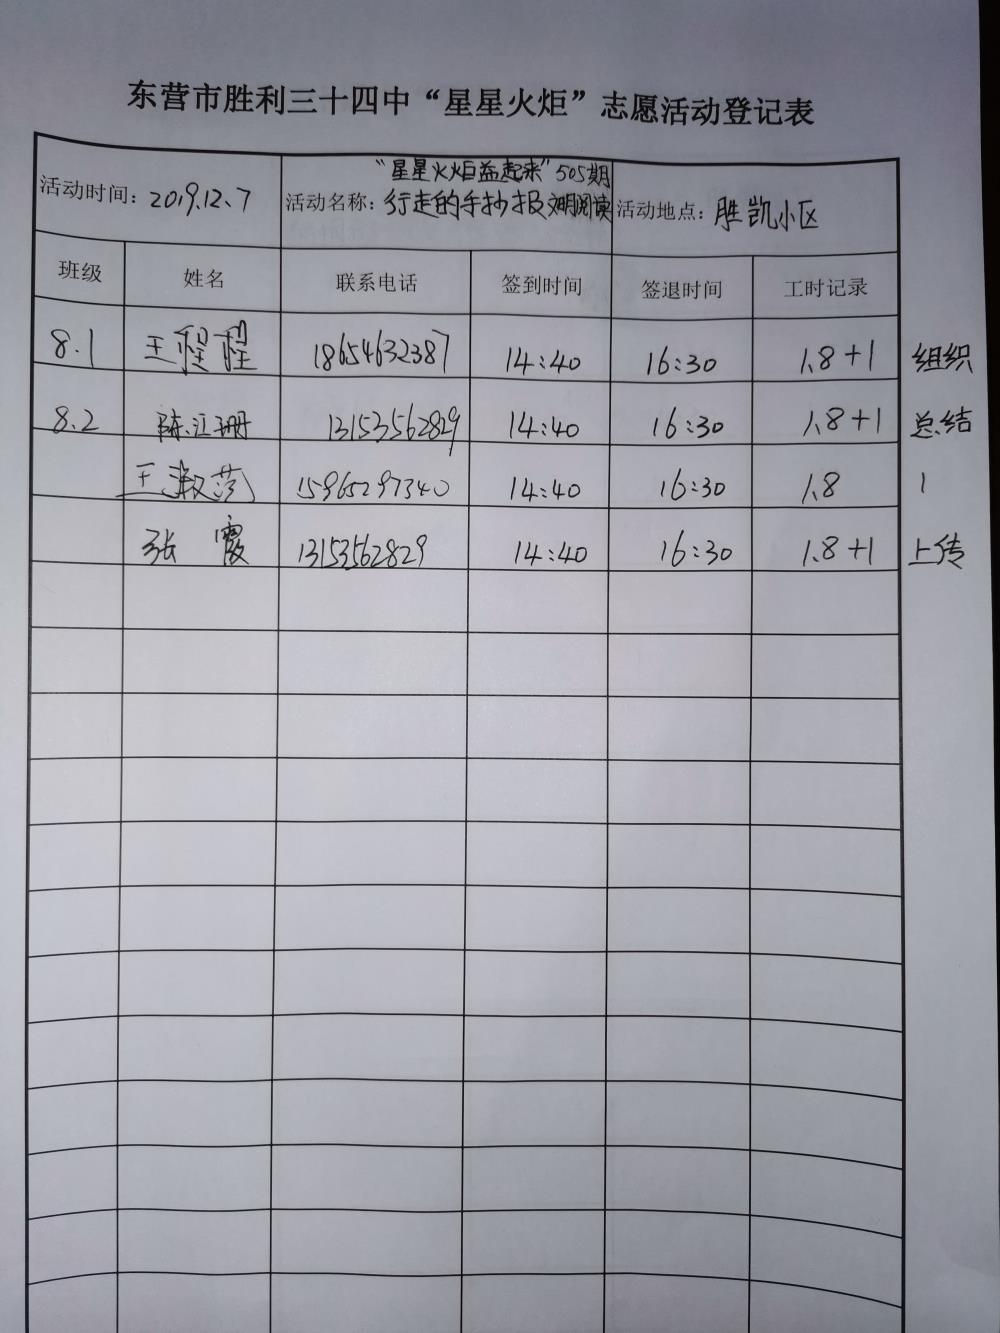 东营市胜利三十四中“星星火炬”志愿活动登记表
活动时间：2019.12.7
“星星火炬益起来”505期
活动名称：行走的手抄报文明阅读
活动地点：胜凯小区
班级 姓名 联系电话 签到时间 签退时间 工时记录
8.1 王程程 18654632387 14:40 16:30 1.8+1 组织
8.2 陈江珊 13153562829 14:40 16:30 1.8+1 总结
王淑芳 15965297340 14:40 16:30 1.8 1
张霞 13153562829 14:40 16:30 1.8+1 上传